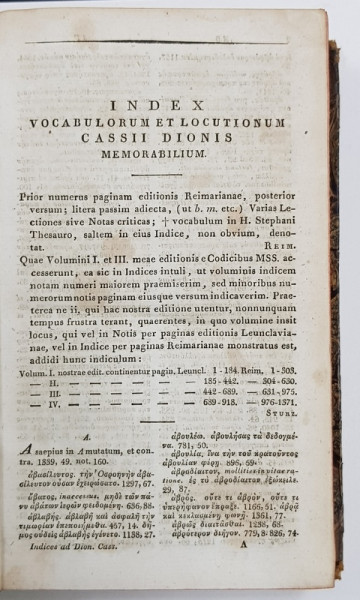 INDEX
VOCABULORUM ET LOCUTIONUM
CASSII DIONIS
MEMORABILIUM.
Prior numerus paginam editionis Reimarianae, posterior
versum; litera passim adiecta, (ut b. m. etc.) Varias Le-
ctiones sive Notas criticas; † vocabulum in H. Stephani
Thesauro, saltem in eius Indice, non obvium, deno-
tat. REIM.
Quae Volumini I. et III. meae editionis e Codicibus MSS. ac-
cesserunt, ea sic in Indices intuli, ut voluminis indicem
notam numeri maiorem praemiserim, sed minoribus nu-
merorum notis paginam eiusque versum indicaverim. Prae-
terea ne ii, qui hac nostra editione utentur, nonnunquam
tempus frustra terant, quaerentes, in quo volumine insit
locus, qui vel in Notis per paginas editionis Leunclavia-
nae, vel in Indice per paginas Reimarianae monstratus est,
addidi hunc indiculum:
Volum. I. nostrae edit. continentur pagin. Leuncl. 1-184. Reim. 1-303.
— II. — — — — 185-442. — 304-630.
— III. — — — — 442-689. — 631-975.
— IV. — — — — 689-918. — 976-1371.
STURZ.
A.
A saepius in Λ mutatum, et con-
tra. 1339, 49. not. 160.
ἀβασίλευτος. τὴν Ὀσροηνὴν ἀβα-
σίλευτον οὖσαν ἐχειρώσατο. 1297, 67.
ἄβατος, inaccessus. μηδὲ τῶν πά-
νυ ἀβάτων ἱερῶν φειδομένη. 636, 88.
ἀβλαβής. ἀβλαβῆ καὶ ἀσφαλῆ τὴν
τιμωρίαν ἐπεποίημεθα. 457, 14. δῆ-
μος οὐδεὶς ἀβλαβὴς ἐγένετο. 1138, 27.
Indices ad Dion. Cass.
ἀβουλέω. ἀβουλήσας τὰ δεδογμέ-
να. 781, 50.
ἀβουλία, ἵνα τὴν τοῦ κρατοῦντος
ἀβουλίαν φέρῃ. 896, 69.
ἁβροδίαιτον, mollities in vitae ra-
tione. ἐς τὸ ἁβροδίαιτον ἐξώκειλε.
29, 87.
ἁβρός. οὔτε τι ἁβρόν, οὔτε τι
ὑπερήφανον ἔπραξε. 1166, 51. ἁβρᾷ
καὶ κεκλασμένῃ φωνῇ. 1361, 77.
ἁβρῶς διαιτᾶσθαι. 1238, 68.
ἁβρότερον διῆγον. 779, 8. 826, 74.
A